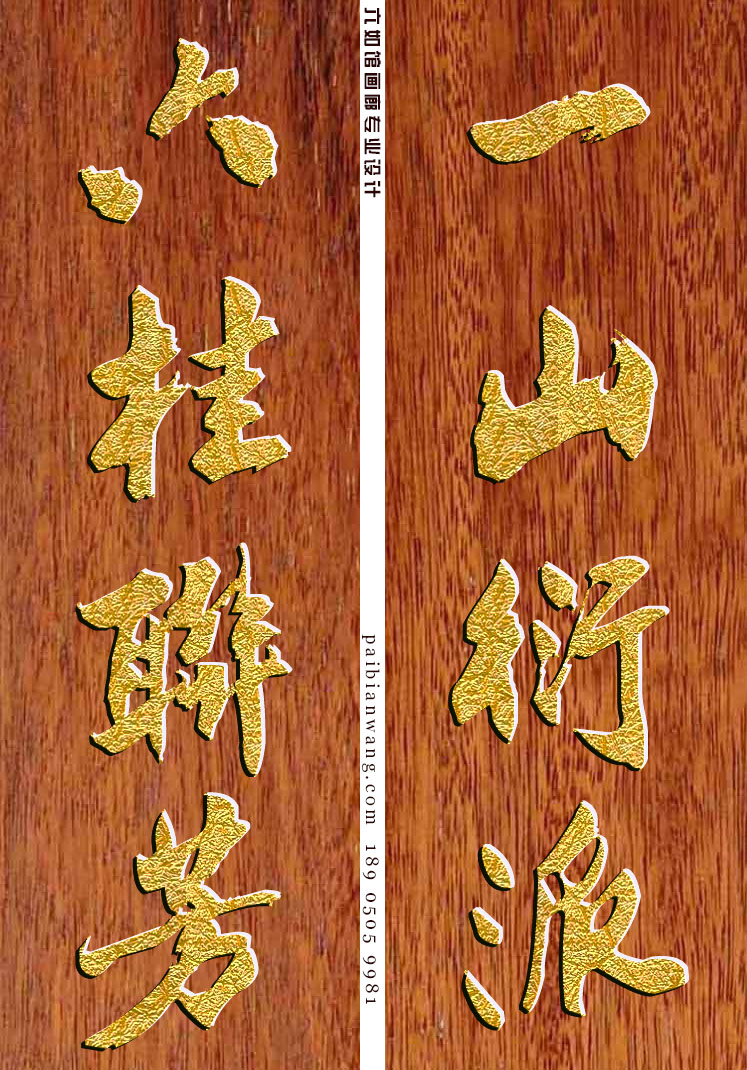 一山衍派
六桂聯芳
六如馆画廊专业设计
paibianwang.com 189 0505 9981